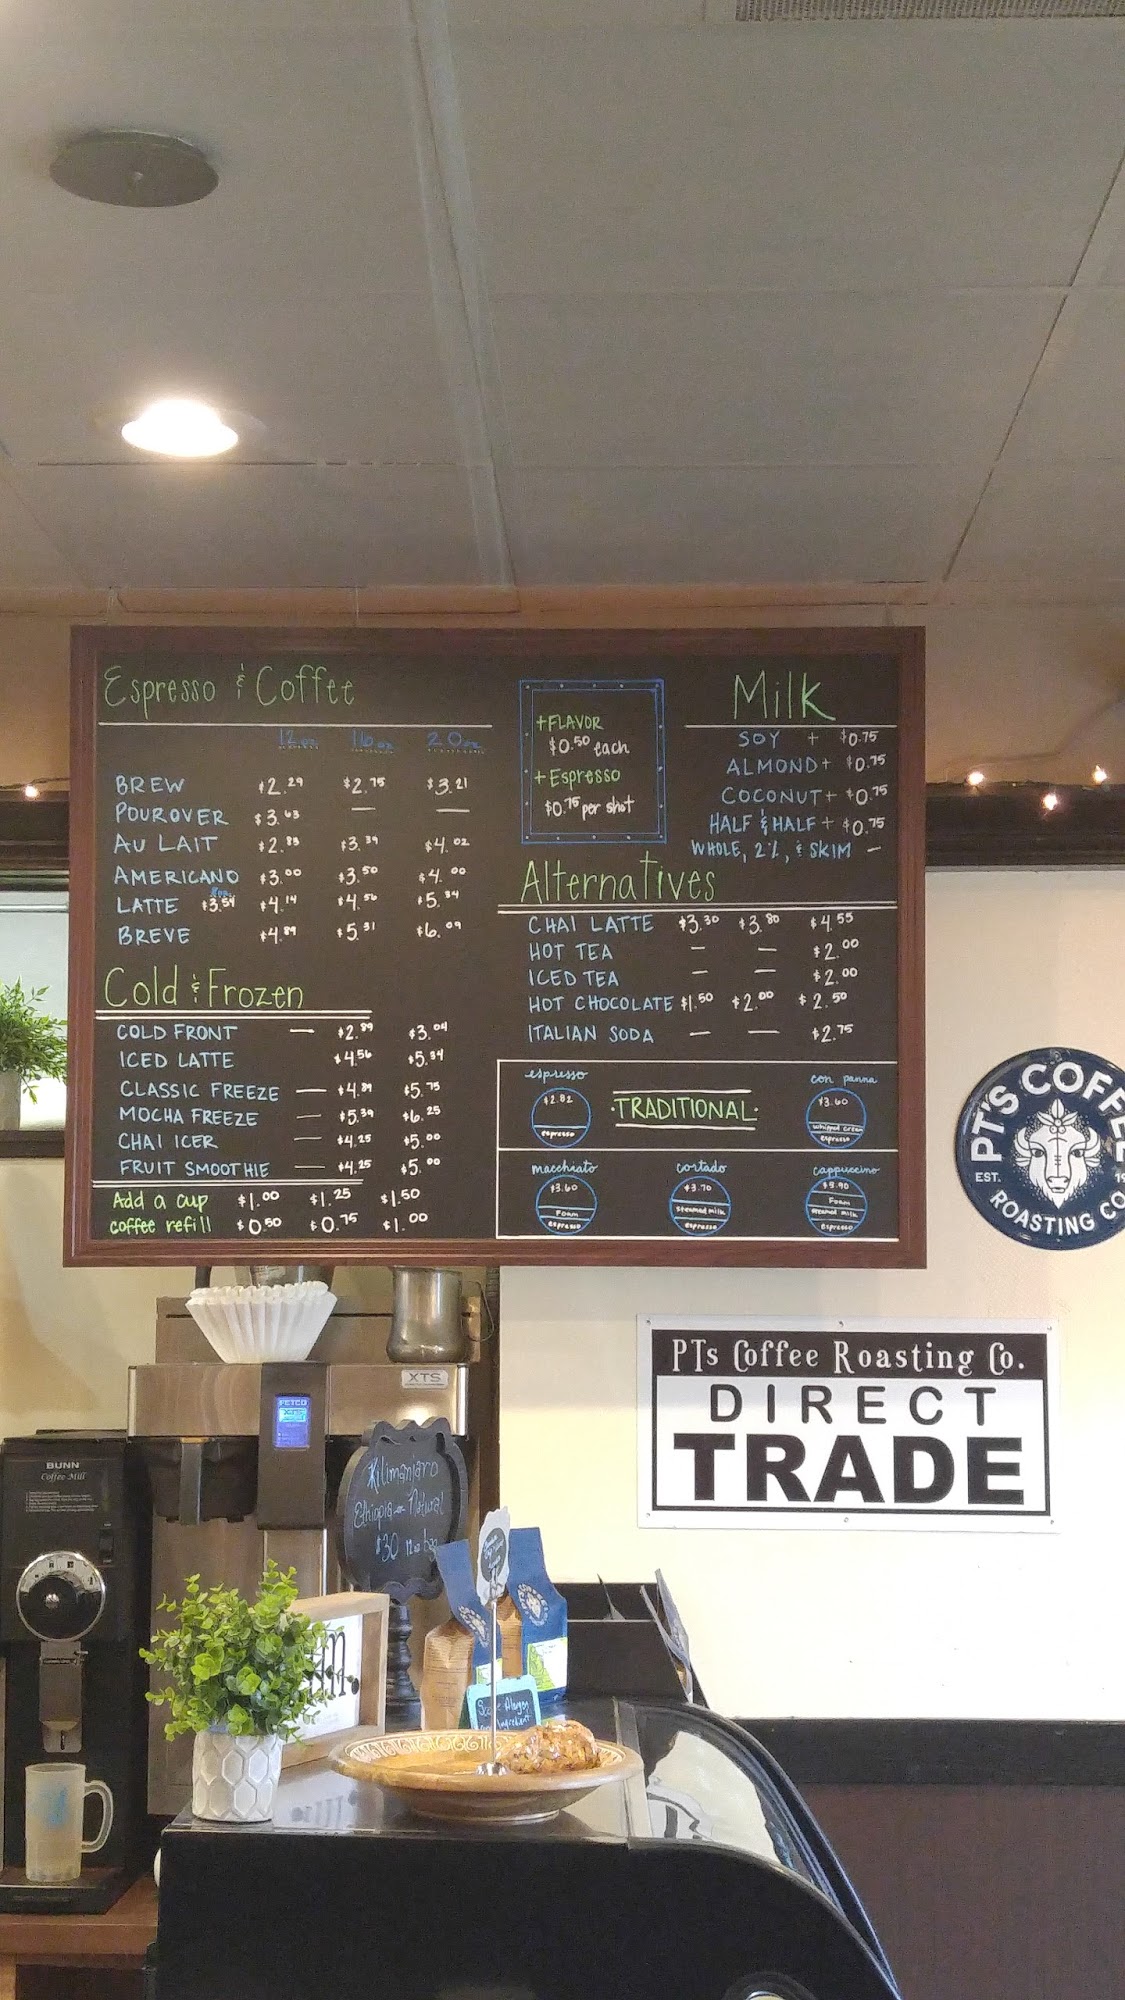 Espresso & Coffee
12oz 16oz 20oz
BREW $2.29 $2.75 $3.21
POUROVER $3.63 — —
AU LAIT $2.83 $3.39 $4.02
AMERICANO $3.00 $3.50 $4.00
8oz
LATTE $3.54 $4.14 $4.56 $5.34
BREVE $4.89 $5.31 $6.09
Cold & Frozen
COLD FRONT — $2.89 $3.04
ICED LATTE $4.56 $5.34
CLASSIC FREEZE — $4.89 $5.75
MOCHA FREEZE — $5.39 $6.25
CHAI ICER — $4.25 $5.00
FRUIT SMOOTHIE — $4.25 $5.00
Add a cup $1.00 $1.25 $1.50
coffee refill $0.50 $0.75 $1.00
+FLAVOR
$0.50 each
+Espresso
$0.75 per shot
Milk
SOY + $0.75
ALMOND + $0.75
COCONUT + $0.75
HALF & HALF + $0.75
WHOLE, 2%, & SKIM —
Alternatives
CHAI LATTE $3.30 $3.80 $4.55
HOT TEA — — $2.00
ICED TEA — — $2.00
HOT CHOCOLATE $1.50 $2.00 $2.50
ITALIAN SODA — — $2.75
espresso
$2.82
espresso
·TRADITIONAL·
con panna
$3.60
whipped cream
espresso
macchiato
$3.60
Foam
espresso
cortado
$3.70
steamed milk
espresso
cappuccino
$3.90
Foam
steamed milk
espresso
PT'S COFFEE
EST.
ROASTING CO
PTs Coffee Roasting Co.
DIRECT
TRADE
XTS
FETCO
BUNN
Coffee Mill
Kilimanjaro
Ethiopia Natural
$30 12oz bag